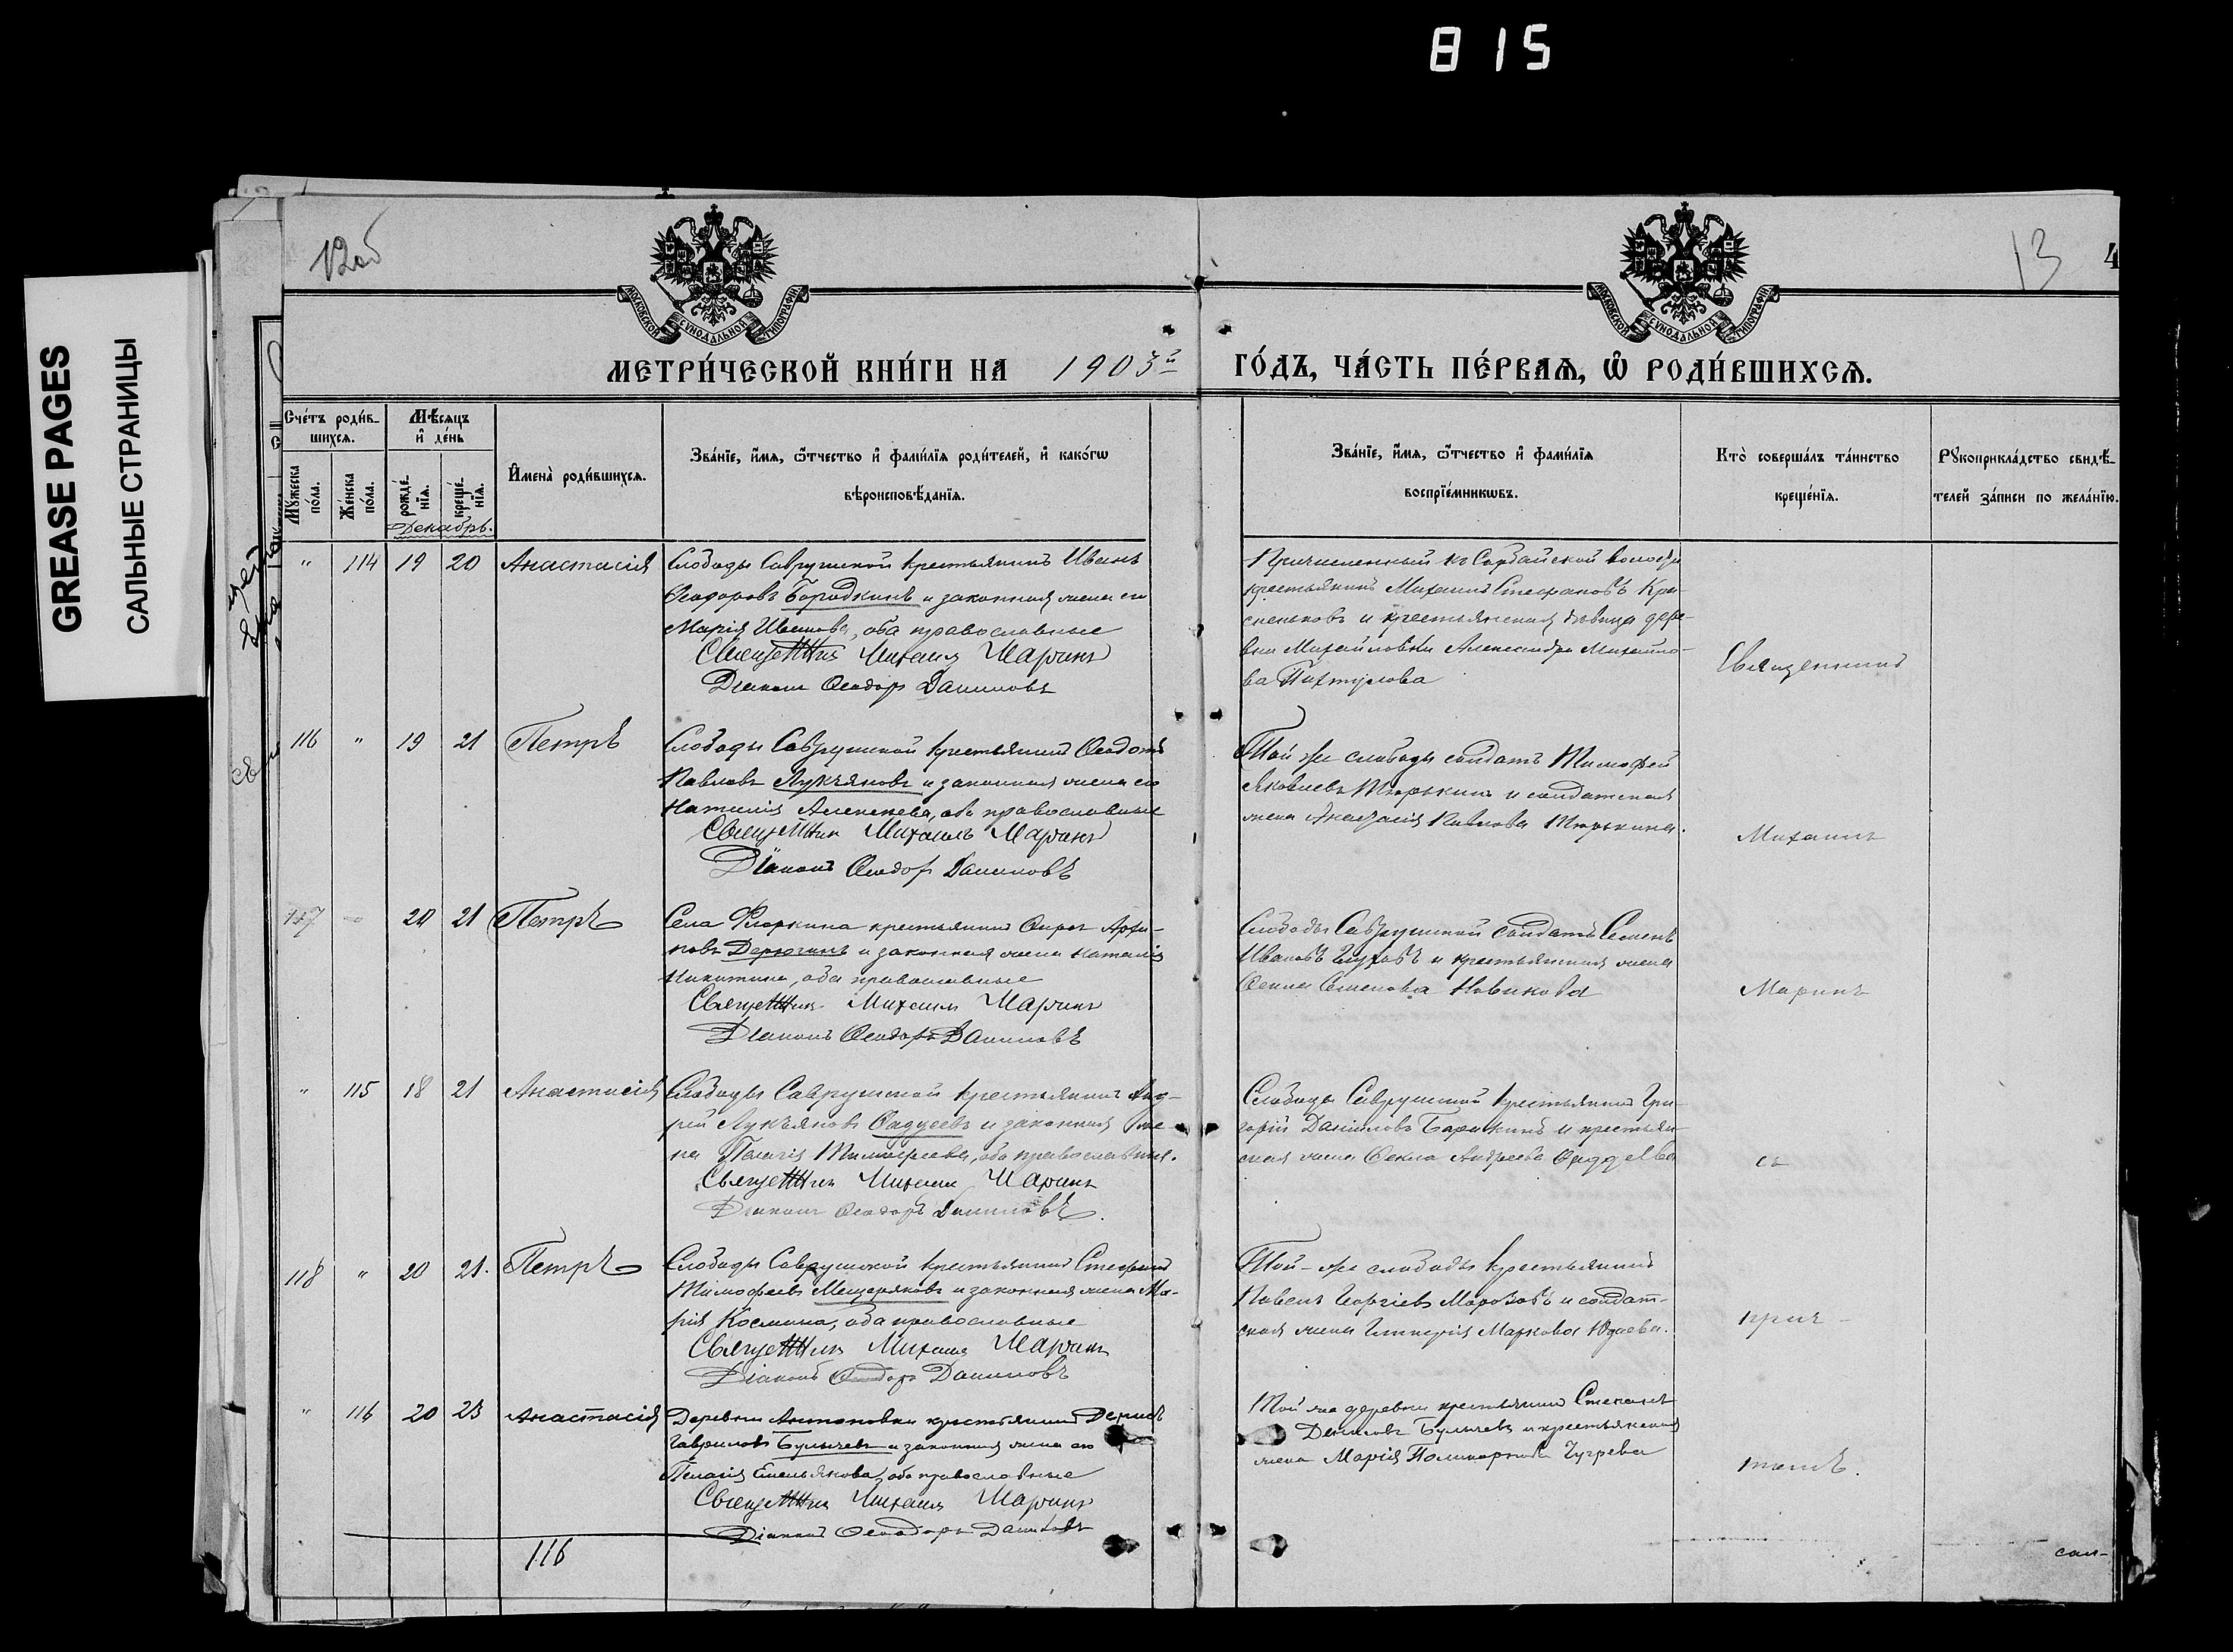 815
GREASE PAGES
САЛЬНЫЕ СТРАНИЦЫ
12об
13
4
МОСКОВСКОЙ СѴНОДАЛЬНОЙ ТИПОГРАФІИ
МОСКОВСКОЙ СѴНОДАЛЬНОЙ ТИПОГРАФІИ
МЕТРИ́ЧЕСКОЙ КНИ́ГИ НА 1903й ГО́ДЪ, ЧА́СТЬ ПЕ́РВАѦ, Ѡ҆ РОДИ́ВШИХСѦ.
Счéтъ роди́в-
шихся.
Мѣ́сяцъ
и҆ де́нь
Мꙋ́жеска
по́ла.
Же́нска
по́ла.
рожде́-
нїѧ.
креще́-
нїѧ.
И҆мена̀ роди́вшихсѧ.
Зва́нїе, и҆́мѧ, ѻ҆́тчество и҆ фами́лїѧ роди́телей, и҆ како́гѡ
вѣроисповѣ́данїѧ.
Зва́нїе, и҆́мѧ, ѻ҆́тчество и҆ фами́лїѧ
воспрїе́мникѡвъ.
Кто̀ соверша́лъ та́инство
креще́нїѧ.
Рꙋкоприкла́дство свидѣ́-
телей за́писи по жела́нїю.
Декабрь.
" 114 19 20 Анастасія
Слободы Саврушской крестьянинъ Иванъ
Ѳеодоровъ Бородкинъ и законная жена его
Марія Иванова, оба православные
Священникъ Михаилъ Маринъ
Діаконъ Ѳеодоръ Даниловъ
Причисленный къ волости
крестьянинъ Михаилъ Стефановъ Кра-
сненковъ и крестьянская дѣвица дере-
вни Михайловки Александра Михайло-
ва
Священникъ
116 " 19 21 Петръ
Слободы Саврушской крестьянинъ Ѳеодотъ
Павловъ Лукъяновъ и законная жена его
Наталія Алексеева, оба православные
Священникъ Михаилъ Маринъ
Діаконъ Ѳеодоръ Даниловъ
Той же слободы солдатъ Тимофей
Яковлевъ Тюрькинъ и солдатская
жена Анастасія Павлова Тюрькина.
Михаилъ
117 20 21 Петръ
Села крестьянинъ Архи-
повъ Дерюгинъ и законная жена Наталія
Никитина, оба православные
Священникъ Михаилъ Маринъ
Діаконъ Ѳеодоръ Даниловъ
Слободы Саврушской солдатъ Семенъ
Ивановъ Глуховъ и крестьянская жена
Ѳекла Семенова Новикова
Маринъ
" 115 18 21 Анастасія
Слободы Саврушской крестьянинъ Анд-
рей Лукъяновъ Ѳаддеевъ и законная же-
на Пелагія Тимофеева, оба православные.
Священникъ Михаилъ Маринъ
Діаконъ Ѳеодоръ Даниловъ.
Слободы Саврушской крестьянинъ Гри-
горій Даниловъ и крестьян-
ская жена Ѳекла Андреева Ѳаддеева
съ
118 " 20 21. Петръ
Слободы Саврушской крестьянинъ Стефанъ
Тимофеевъ Мещеряковъ и законная жена Ма-
рія Космина, оба православные
Священникъ Михаилъ Маринъ
Діаконъ Ѳеодоръ Даниловъ
Той-же слободы крестьянинъ
Павелъ Георгіевъ Морозовъ и солдат-
ская жена Гликерія Маркова Юдаева.
прич-
" 116 20 23 Анастасія
Деревни Антоновки крестьянинъ Денисъ
Гавриловъ Булычевъ и законная жена его
Пелагія Емельянова, оба православные
Священникъ Михаилъ Маринъ
Діаконъ Ѳеодоръ Даниловъ
Той же деревни крестьянинъ Степанъ
Денисовъ Булычевъ и крестьянская
жена Марія Поликарпова
томъ.
116